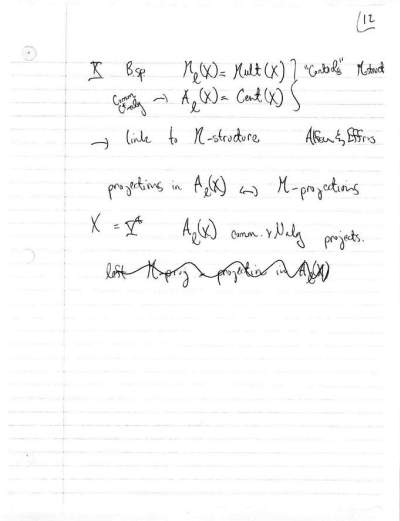 12
X B.sp M_ℓ(X) = Mult(X) } "Controls" M-struct
Comm C*-alg → A_ℓ(X) = Cent(X)
→ link to M-structure Alfsen & Effros
projections in A_ℓ(X) ↔ M-projections
X = Y* A_ℓ(X) comm. v Nalg projects.
left M-proj = projection in A_ℓ(X)